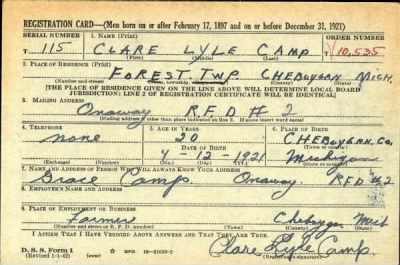 REGISTRATION CARD—(Men born on or after February 17, 1897 and on or before December 31, 1921)
SERIAL NUMBER 1. NAME (Print) ORDER NUMBER
T 115 CLARE LYLE CAMP 10,535
(First) (Middle) (Last)
2. PLACE OF RESIDENCE (Print)
FOREST TWP CHEBOYGAN MICH.
(Number and street) (Town, township, village, or city) (County) (State)
[THE PLACE OF RESIDENCE GIVEN ON THE LINE ABOVE WILL DETERMINE LOCAL BOARD
JURISDICTION; LINE 2 OF REGISTRATION CERTIFICATE WILL BE IDENTICAL]
3. MAILING ADDRESS
Onaway R.F.D. # 2
[Mailing address if other than place indicated on line 2. If same insert word same]
4. TELEPHONE 5. AGE IN YEARS 6. PLACE OF BIRTH
none 20 CHEBOYGAN. CO.
DATE OF BIRTH (Town or county)
4-12-1921 Michigan
(Exchange) (Number) (Mo.) (Day) (Yr.) (State or country)
7. NAME AND ADDRESS OF PERSON WHO WILL ALWAYS KNOW YOUR ADDRESS
Grace Camp Onaway R.F.D. #2
8. EMPLOYER'S NAME AND ADDRESS
9. PLACE OF EMPLOYMENT OR BUSINESS
Farmer Cheboygan Mich
(Number and street or R. F. D. number) (Town) (County) (State)
I AFFIRM THAT I HAVE VERIFIED ABOVE ANSWERS AND THAT THEY ARE TRUE.
D. S. S. Form 1
(Revised 1-1-42) GPO 16-21630-2
Clare Lyle Camp